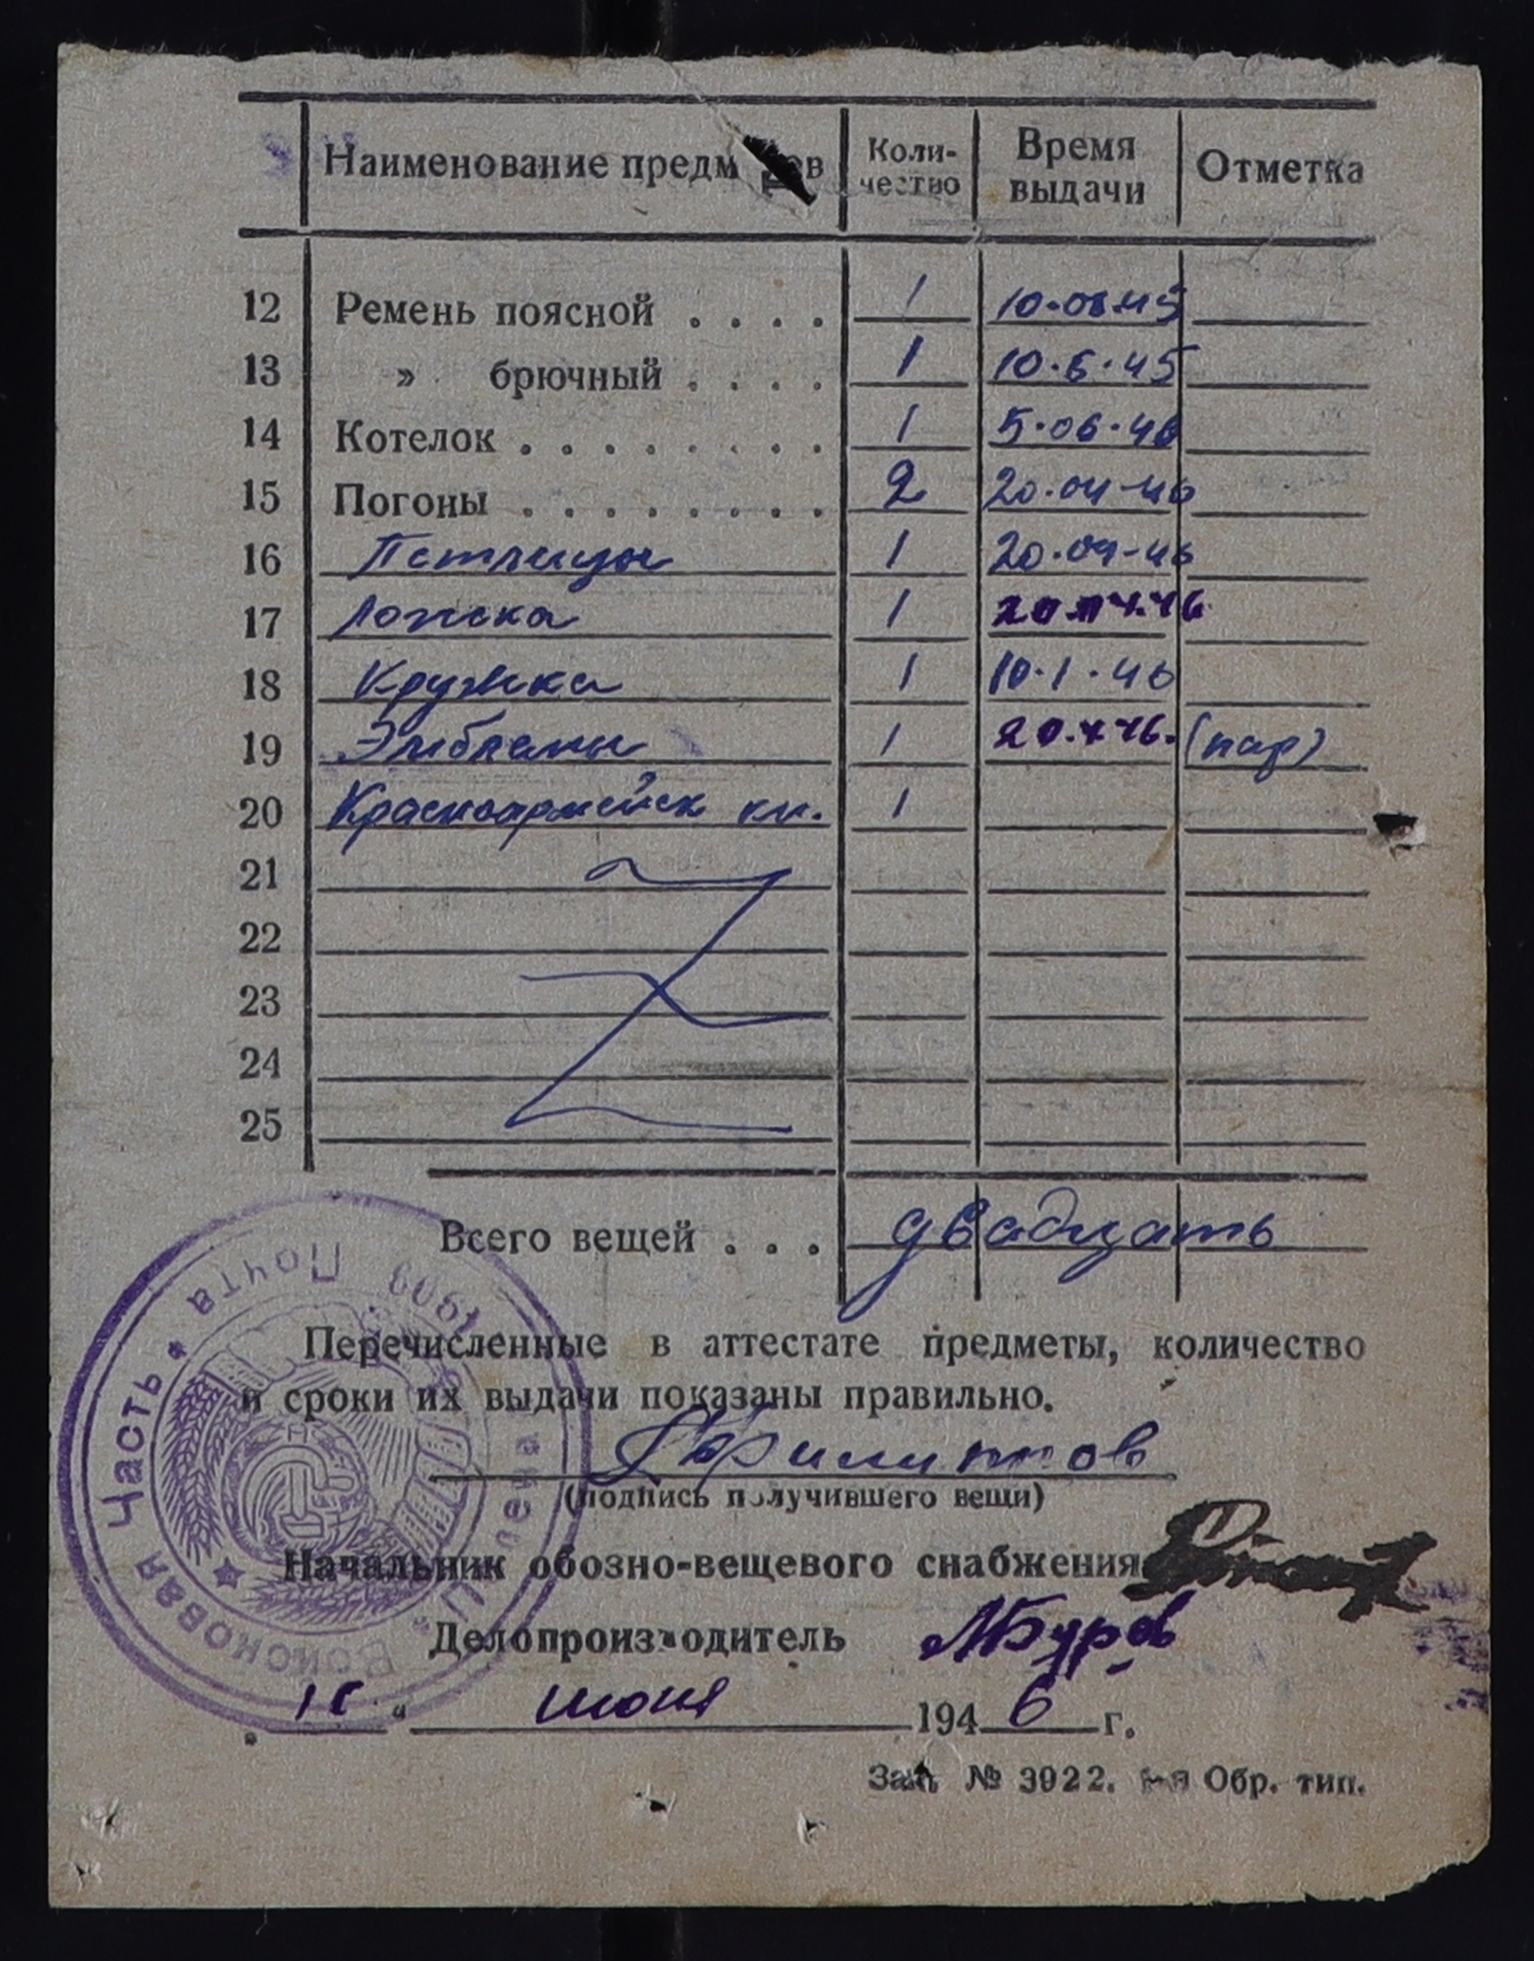 Наименование предметов Коли- чество Время выдачи Отметка
12 Ремень поясной . . . . 1 10.06.45
13 » брючный . . . . 1 10.6.45
14 Котелок . . . . . . . . 1 5.06.46
15 Погоны . . . . . . . . 2 20.04-46
16 Петлицы 1 20.04-46
17 Ложка 1 20.04.46
18 Кружка 1 10.1.46
19 Эмблемы 1 20.4.46. (пар)
20 Красноармейск кн. 1
21
22
23
24
25
Всего вещей . . . двадцать
Перечисленные в аттестате предметы, количество
и сроки их выдачи показаны правильно.
Филиппов
(подпись получившего вещи)
Начальник обозно-вещевого снабжения
Делопроизводитель МБуров
" июня 1946 г.
Зак. № 3922. 1-я Обр. тип.
Войсковая Часть * Почта